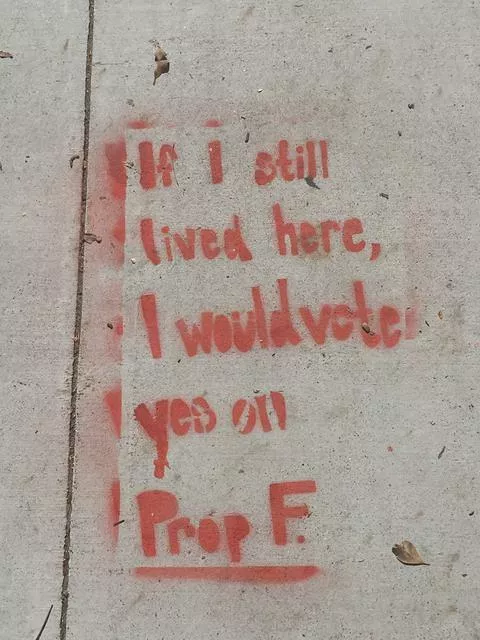 If I still
lived here,
I would vote
yes on
Prop F.